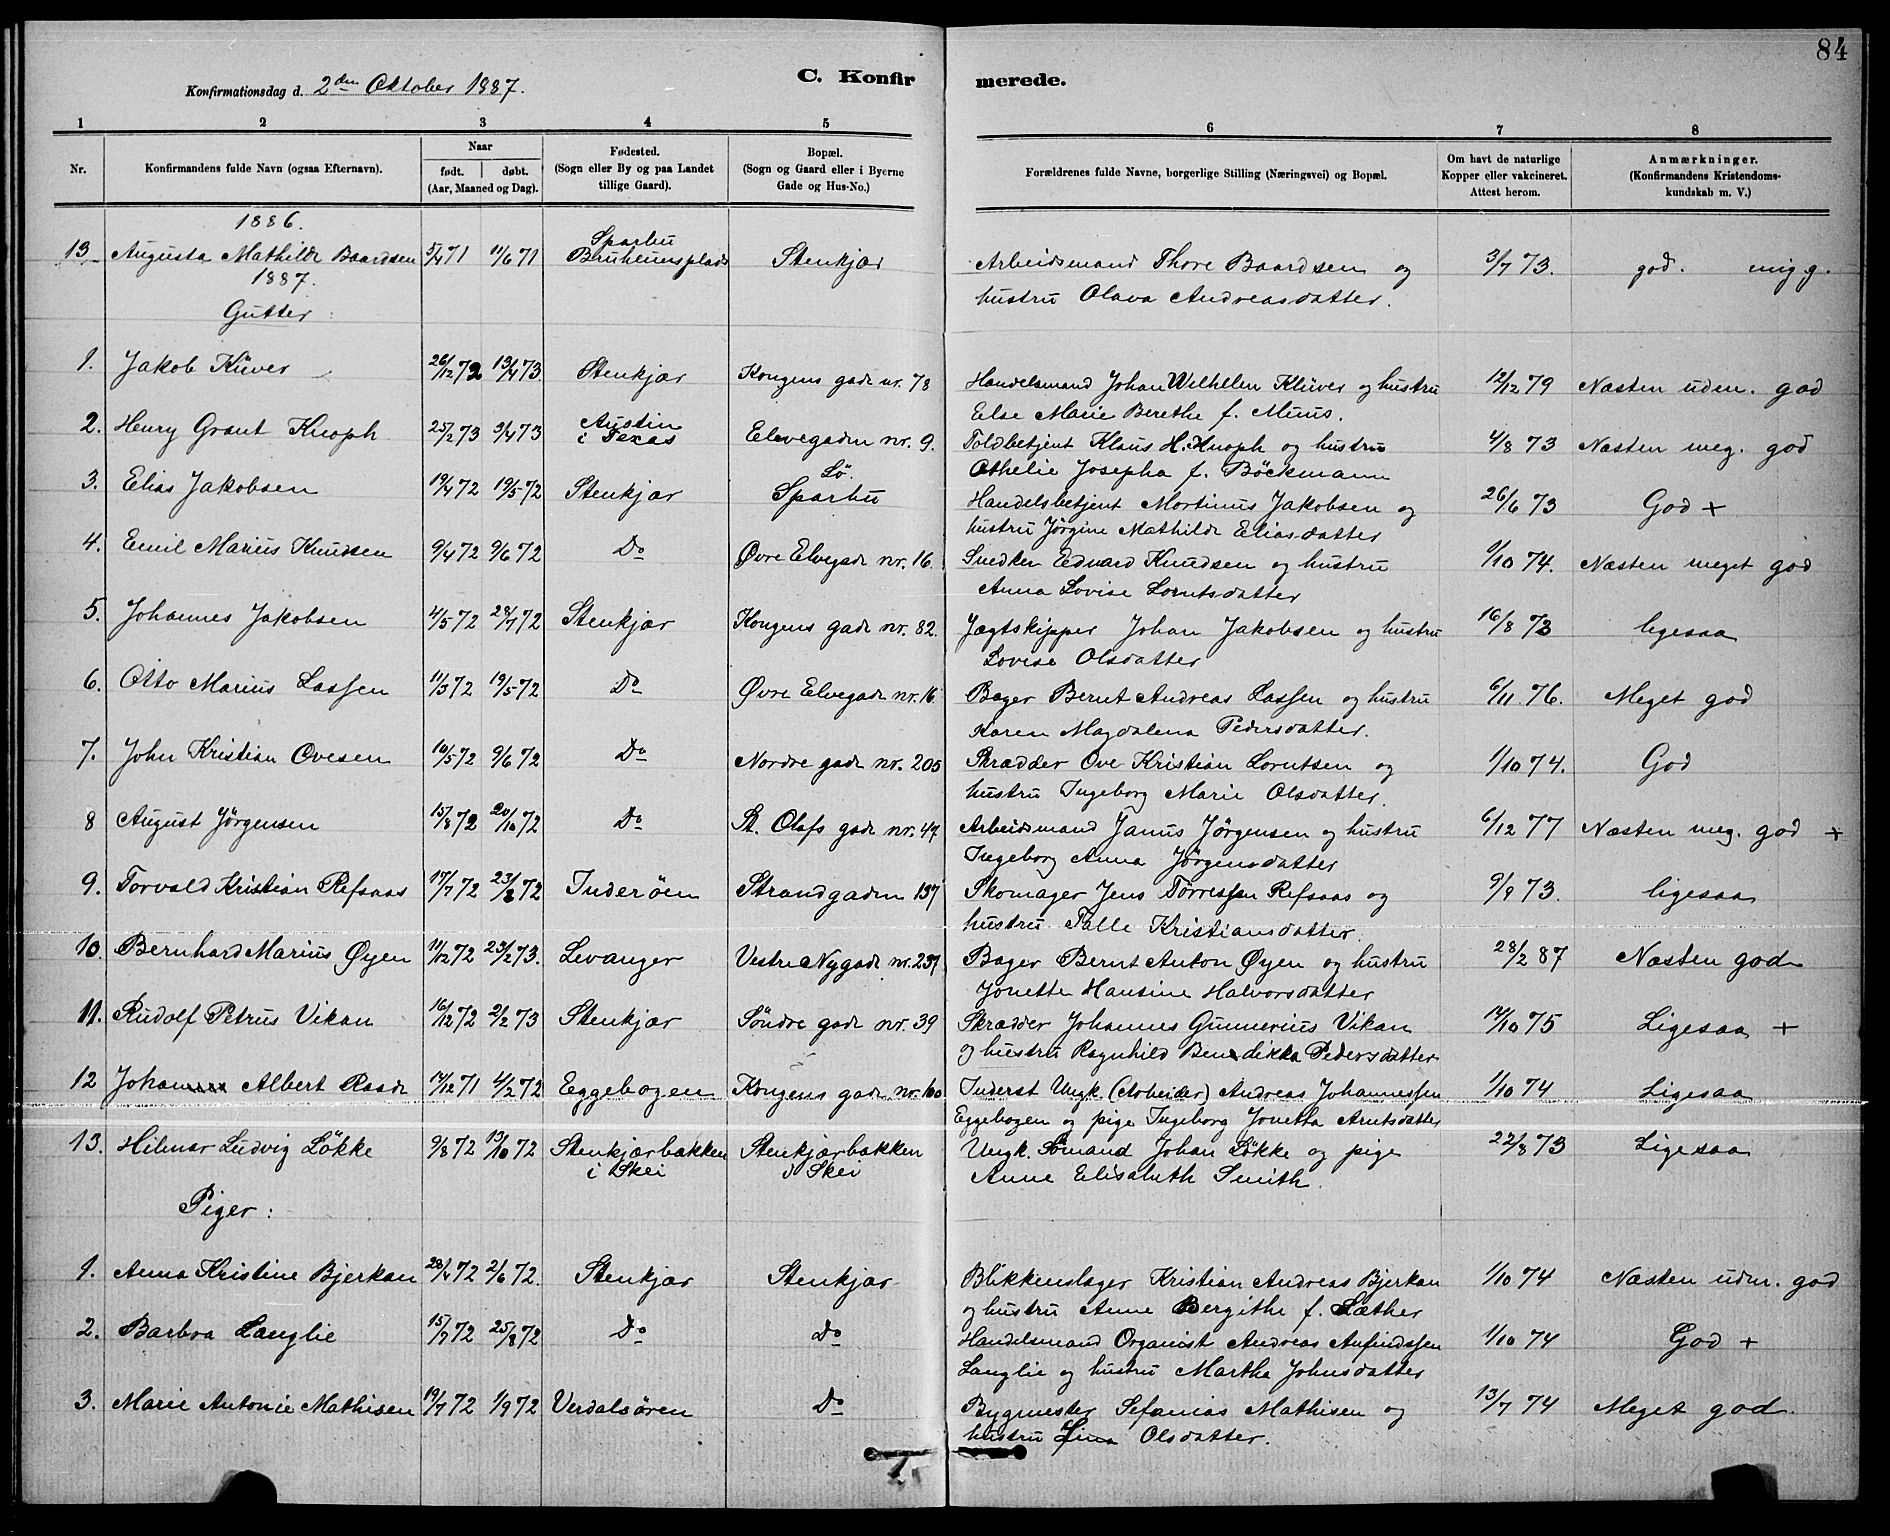 84
Konfirmationsdag d. 2den Oktober 1887.
C. Konfirmerede.
1 2 3 4 5 6 7 8
Nr. Konfirmandens fulde Navn (ogsaa Efternavn). Naar født. døbt. (Aar, Maaned og Dag). Fødested. (Sogn eller By og paa Landet tillige Gaard). Bopæl. (Sogn og Gaard eller i Byerne Gade og Hus-No.) Forældrenes fulde Navne, borgerlige Stilling (Næringsvei) og Bopæl. Om havt de naturlige Kopper eller vakcineret. Attest herom. Anmærkninger. (Konfirmandens Kristendomskundskab m. V.)
1886.
13 Augusta Mathilde Baardsen 5/4 71 11/6 71 Sparbu Bruheimsplads Stenkjær Arbeidsmand Thore Baardsen og 3/7 73. god. mig g.
hustru Olava Andreasdatter.
1887.
Gutter:
1. Jakob Küver 26/12 72 13/4 73 Stenkjær Kongens gade nr. 78 Handelsmand Johan Wilhelm Klüver og hustru 12/12 79 Næsten udm. god
Else Marie Berethe f. Muus.
2. Henry Grant Knoph 25/2 73 9/4 73 Austin i Texas Elvegaden nr. 9. Toldbetjent Klaus H. Knoph og hustru 4/8 73 Næsten meg. god
Othelie Josepha f. Böckmann
3. Elias Jakobsen 19/4 72 19/5 72 Stenkjær Lö. Sparbu Handelsbetjent Mortinus Jakobsen og 26/6 73 God +
hustru Jørgine Mathilde Eliasdatter
4. Emil Marius Knudsen 9/4 72 9/6 72 Do Øvre Elvegade nr. 16. Snedker Edvard Knudsen og hustru 1/10 74. Næsten meget god
Anna Lovise Lorntsdatter
5. Johannes Jakobsen 4/5 72 28/7 72 Stenkjær Kongens gade nr. 82. Jægtskipper Johan Jakobsen og hustru 16/8 73 ligesaa
Lovise Olsdatter
6. Otto Marius Lassen 11/3 72 19/5 72 Do Øvre Elvegade nr. 16 Bager Bernt Andreas Lassen og hustru 6/11 76. Meget god
Karen Magdalena Pedersdatter.
7. John Kristian Ovesen 10/5 72 9/6 72 Do Nordre gade nr. 205 Skrædder Ove Kristian Lorntsen og 1/10 74. God
hustru Ingeborg Marie Olsdatter.
8 August Jörgensen 15/8 72 20/10 72 Do St. Olafs gade nr. 47 Arbeidsmand Janus Jörgensen og hustru 6/12 77 Næsten meg. god +
Ingeborg Anna Jörgensdatter
9. Torvald Kristian Refsaas 17/7 72 23/8 72 Inderöen Strandgaden 137 Skomager Jens Törressen Refsaas og 9/9 73. ligesaa
hustru Talle Kristiansdatter.
10. Bernhard Marius Øyen 11/12 72 23/2 73. Levanger Vestre Nygade nr. 237 Bager Bernt Anton Øyen og hustru 28/2 87 Næsten god
Jonette Hansine Halvorsdatter
11. Rudolf Petrus Vikan 16/12 72 2/2 73 Stenkjær Söndre gade nr. 39 Skrædder Johannes Gunnerius Vikan 14/10 75 Ligesaa +
og hustru Ragnhild Bendikka Pedersdatter
12 Johan Albert Raade 14/12 71 4/2 72 Eggebogen Kongens gade nr. 100 Inderst Ungk. (Arbeider) Andreas Johannessen 1/10 74 Ligesaa
Eggebogen og pige Ingeborg Jonetta Arntsdatter
13. Hilmar Ludvig Lökke 9/8 72 13/10 72 Stenkjærbakken i Skei Stenkjærbakken Skei Ungk. Sömand Johan Lökke og pige 22/8 73 Ligesaa
Anne Elisabeth Smith.
Piger:
1. Anna Kristine Bjerkan 28/4 72 2/6 72. Stenkjær Stenkjær Blikkenslager Kristian Andreas Bjerkan 1/10 74 Næsten udm. god
og hustru Anne Bergithe f. Sæther
2. Barbra Langlie 15/7 72 25/8 72 Do Do Handelsmand Organist Andreas Anfindssen 1/10 74 God +
Langlie og hustru Martha Johnsdatter
3. Marie Antonie Mathisen 19/7 72 1/9 72 Verdalsören Do Bygmester Sefanias Mathisen og 13/7 74 Meget god.
hustru Lina Olsdatter.